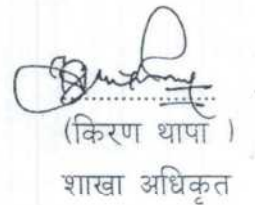 (किरण थापा )
शाखा अधिकृत